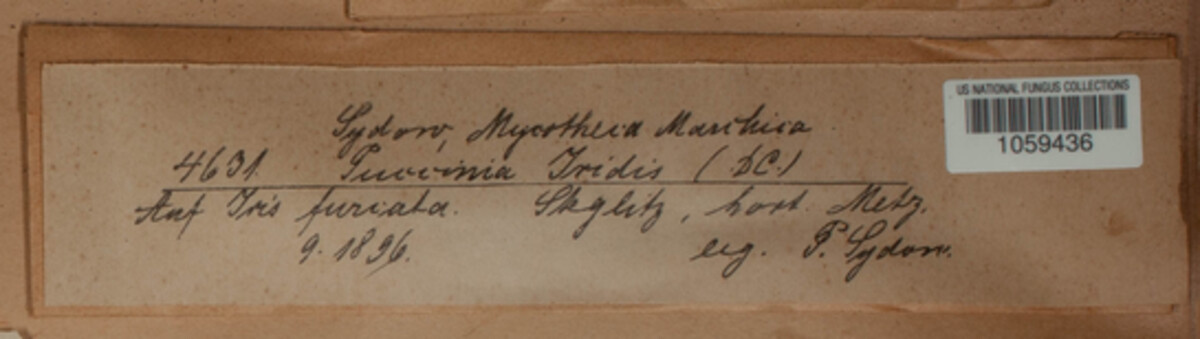 Sydow, Mycotheca Marchica
4631. Puccinia Iridis (DC.)
Auf Iris furcata. Steglitz, hort. Metz.
9. 1896. leg. P. Sydow.
US NATIONAL FUNGUS COLLECTIONS
1059436